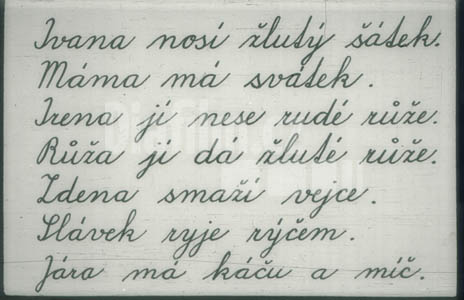 Ivana nosí žlutý šátek.
Máma má svátek.
Irena jí nese rudé růže.
Růža jí dá žluté růže.
Zdena smaží vejce.
Slávek ryje rýčem.
Jára má káču a míč.